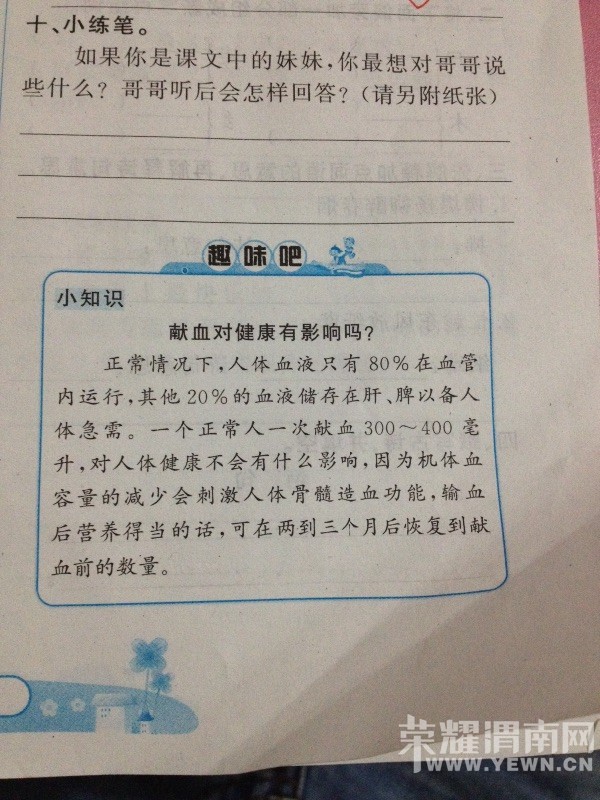 十、小练笔。
如果你是课文中的妹妹,你最想对哥哥说
些什么?哥哥听后会怎样回答?(请另附纸张)
趣味吧
小知识
献血对健康有影响吗?
正常情况下,人体血液只有80%在血管
内运行,其他20%的血液储存在肝、脾以备人
体急需。一个正常人一次献血300～400毫
升,对人体健康不会有什么影响,因为机体血
容量的减少会刺激人体骨髓造血功能,输血
后营养得当的话,可在两到三个月后恢复到献
血前的数量。
荣耀渭南网
WWW.YEWN.CN